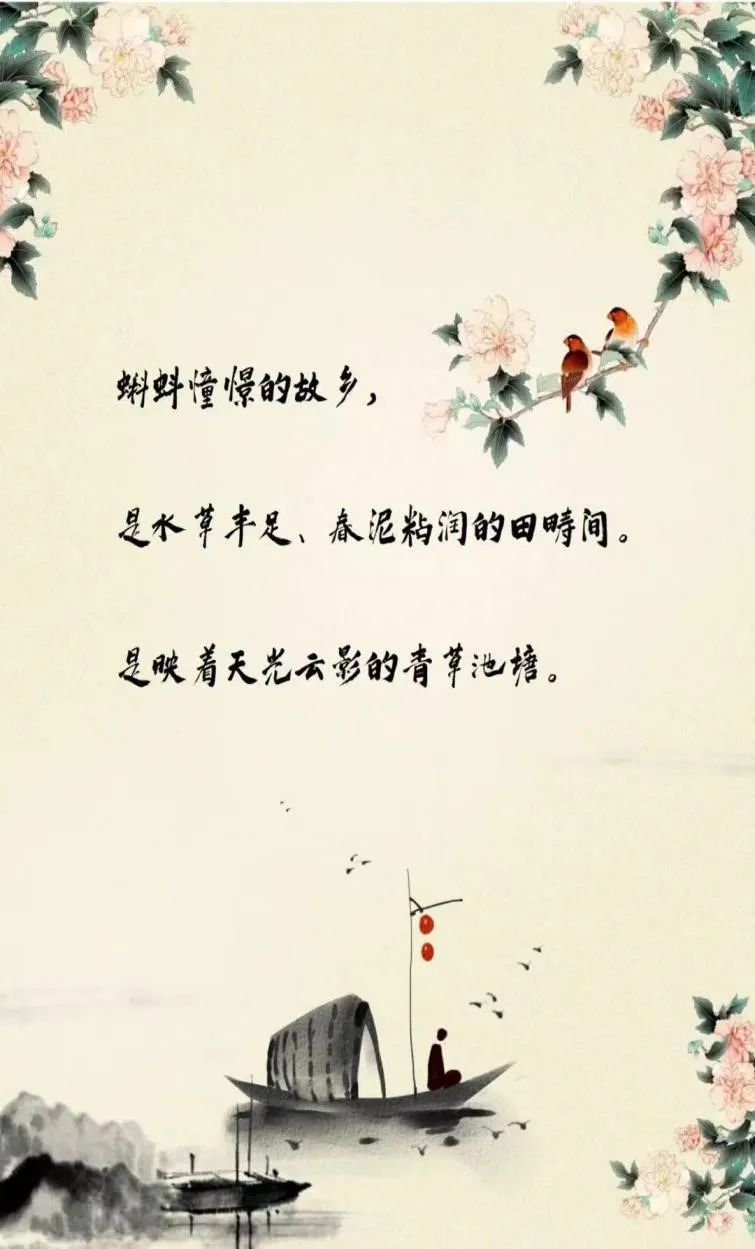 蝌蚪憧憬的故乡，
是水草丰足、春泥粘润的田畴间。
是映着天光云影的青草池塘。